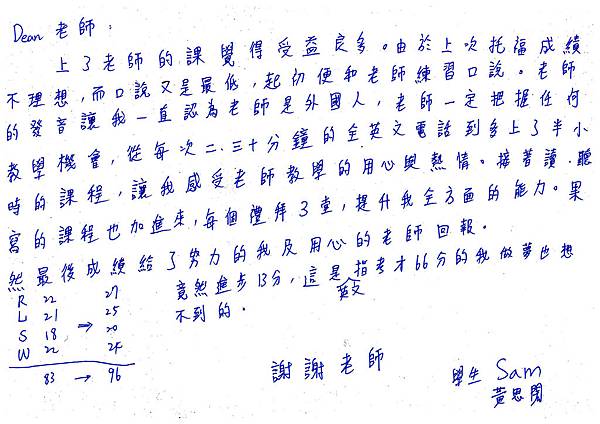 Dean 老師：
上了老師的課覺得受益良多。由於上次托福成績
不理想，而口說又是最低，起初便和老師練習口說。老師
的發音讓我一直認為老師是外國人，老師一定把握任何
教學機會，從每次二.三十分鐘的全英文電話到多上了半小
時的課程，讓我感受老師教學的用心與熱情。接著讀.聽
寫的課程也加進來，每個禮拜3堂，提升我全方面的能力。果
然最後成績給了努力的我及用心的老師回報。
R 22 27
L 21 25
S 18 → 20
W 22 24
83 → 96
竟然進步13分，這是指考才66分的我做夢也想
英文
不到的。
謝謝老師
學生 Sam
黃思閔